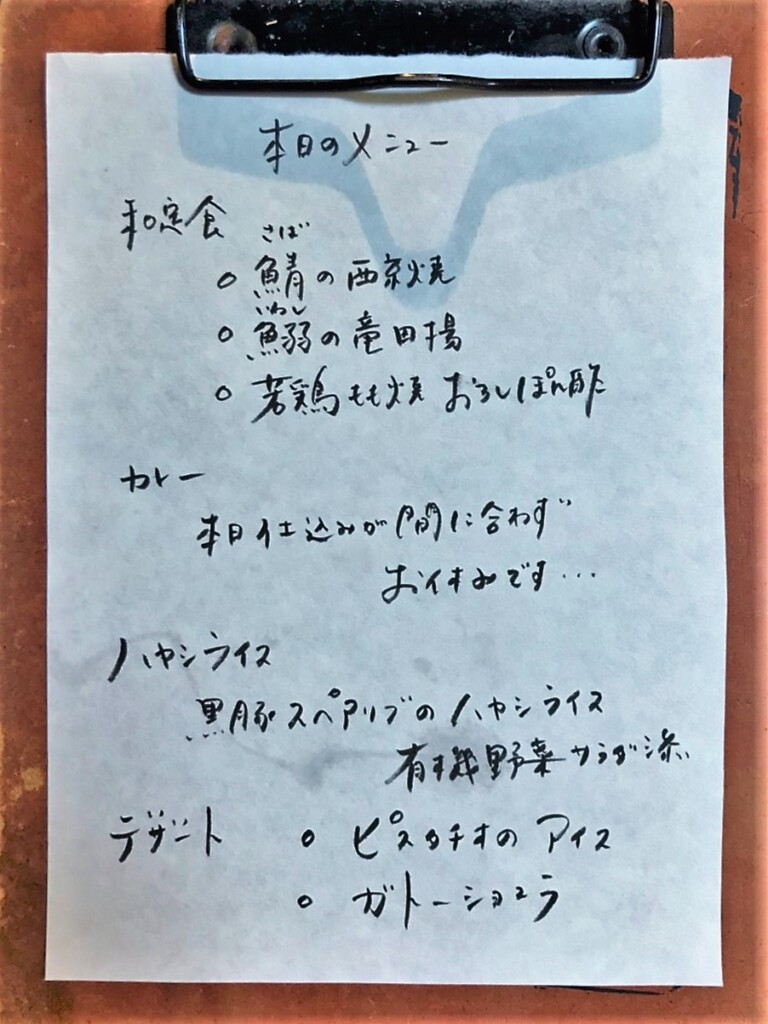 本日のメニュー
和定食
さば
○ 鯖の西京焼
いわし
○ 鰯の竜田揚
○ 若鶏もも焼 おろしぽん酢
カレー
本日仕込みが間に合わず
お休みです…
ハヤシライス
黒豚スペアリブのハヤシライス
有機野菜サラダ添
デザート ○ ピスタチオのアイス
○ ガトーショコラ